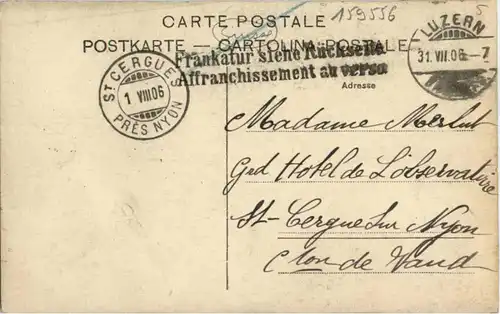 CARTE POSTALE
159556
5
POSTKARTE — CARTOLINA POSTALE
Frankatur siehe Rückseite
Affranchissement au verso
LUZERN
31. VII. 06. - 7
ST CERGUES
1 VIII 06
PRÈS NYON
Adresse
Madame Merlut
Grd Hotel de L'observatoire
St-Cergue sur Nyon
Cton de Vaud